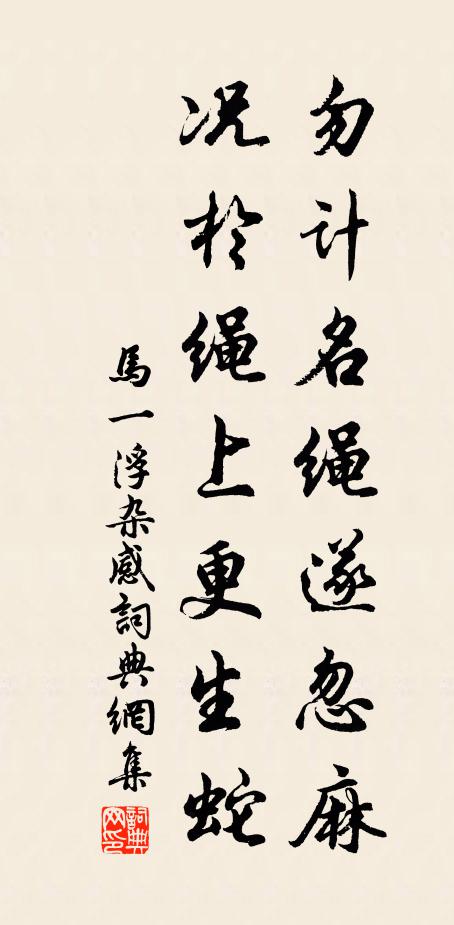 勿计名绳遂忽麻
况於绳上更生蛇
馬一浮杂感詞典網集
詞典网印